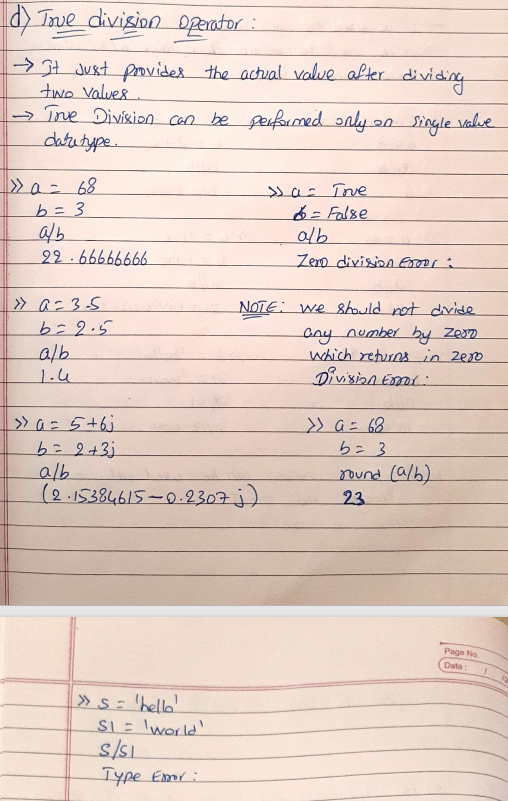 d) True division operator :
→ It Just provides the actual value after dividing
two values.
→ True Division can be performed only on single value
datatype.
>> a = 68
b = 3
a/b
22.66666666
>> a = True
b = False
a/b
Zero division Error :
>> a = 3.5
b = 2.5
a/b
1.4
NOTE: we should not divide
any number by zero
which returns in zero
Division Error :
>> a = 5+6j
b = 2+3j
a/b
(2.15384615-0.2307j)
>> a = 68
b = 3
round (a/b)
23
Page No.
Date : /
>> s = 'hello'
s1 = 'world'
s/s1
Type Error :